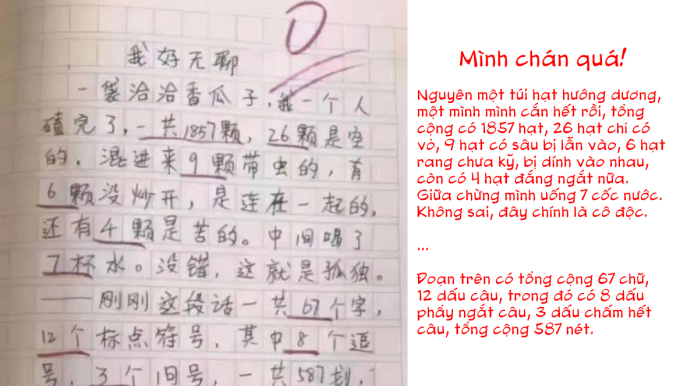 0
我好无聊
一袋洽洽香瓜子，我一个人
磕完了，一共1857颗，26颗是空
的，混进来9颗带虫的，有
6颗没炒开，是连在一起的，
还有4颗是苦的。中间喝了
7杯水。没错，这就是孤独。
——刚刚这段话一共67个字，
12个标点符号，其中8个逗
号，3个句号，一共587划，
Mình chán quá!
Nguyên một túi hạt hướng dương,
một mình mình cắn hết rồi, tổng
cộng có 1857 hạt, 26 hạt chỉ có
vỏ, 9 hạt có sâu bị lẫn vào, 6 hạt
rang chưa kỹ, bị dính vào nhau,
còn có 4 hạt đắng ngắt nữa.
Giữa chừng mình uống 7 cốc nước.
Không sai, đây chính là cô độc.
...
Đoạn trên có tổng cộng 67 chữ,
12 dấu câu, trong đó có 8 dấu
phẩy ngắt câu, 3 dấu chấm hết
câu, tổng cộng 587 nét.